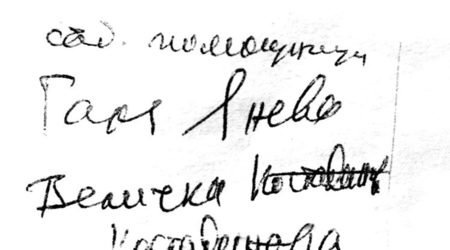 съд. помощници
Галя Янева
Величка
Костадинова